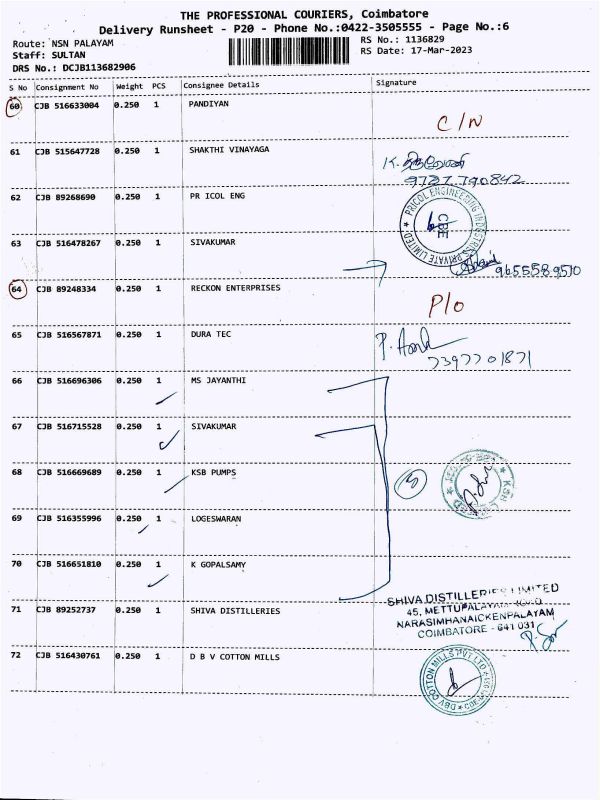 THE PROFESSIONAL COURIERS, Coimbatore
Delivery Runsheet - P20 - Phone No.:0422-3505555 - Page No.:6
Route: NSN PALAYAM RS No.: 1136829
Staff: SULTAN RS Date: 17-Mar-2023
DRS No.: DCJB113682906
S No Consignment No Weight PCS Consignee Details Signature
60 CJB 516633004 0.250 1 PANDIYAN
C/N
61 CJB 515647728 0.250 1 SHAKTHI VINAYAGA
62 CJB 89268690 0.250 1 PR ICOL ENG
PRICOL ENGINEERING INDUSTRIES PRIVATE LIMITED
CBE
63 CJB 516478267 0.250 1 SIVAKUMAR
9655589510
64 CJB 89248334 0.250 1 RECKON ENTERPRISES
P/o
65 CJB 516567871 0.250 1 DURA TEC
7397701871
66 CJB 516696306 0.250 1 MS JAYANTHI
67 CJB 516715528 0.250 1 SIVAKUMAR
68 CJB 516669689 0.250 1 KSB PUMPS
5
69 CJB 516355996 0.250 1 LOGESWARAN
70 CJB 516651810 0.250 1 K GOPALSAMY
71 CJB 89252737 0.250 1 SHIVA DISTILLERIES
SHIVA DISTILLERIES LIMITED
45, METTUPALAYAM ROAD
NARASIMHANAICKENPALAYAM
COIMBATORE - 641 031
72 CJB 516430761 0.250 1 D B V COTTON MILLS
DBV COTTON MILLS PVT LTD